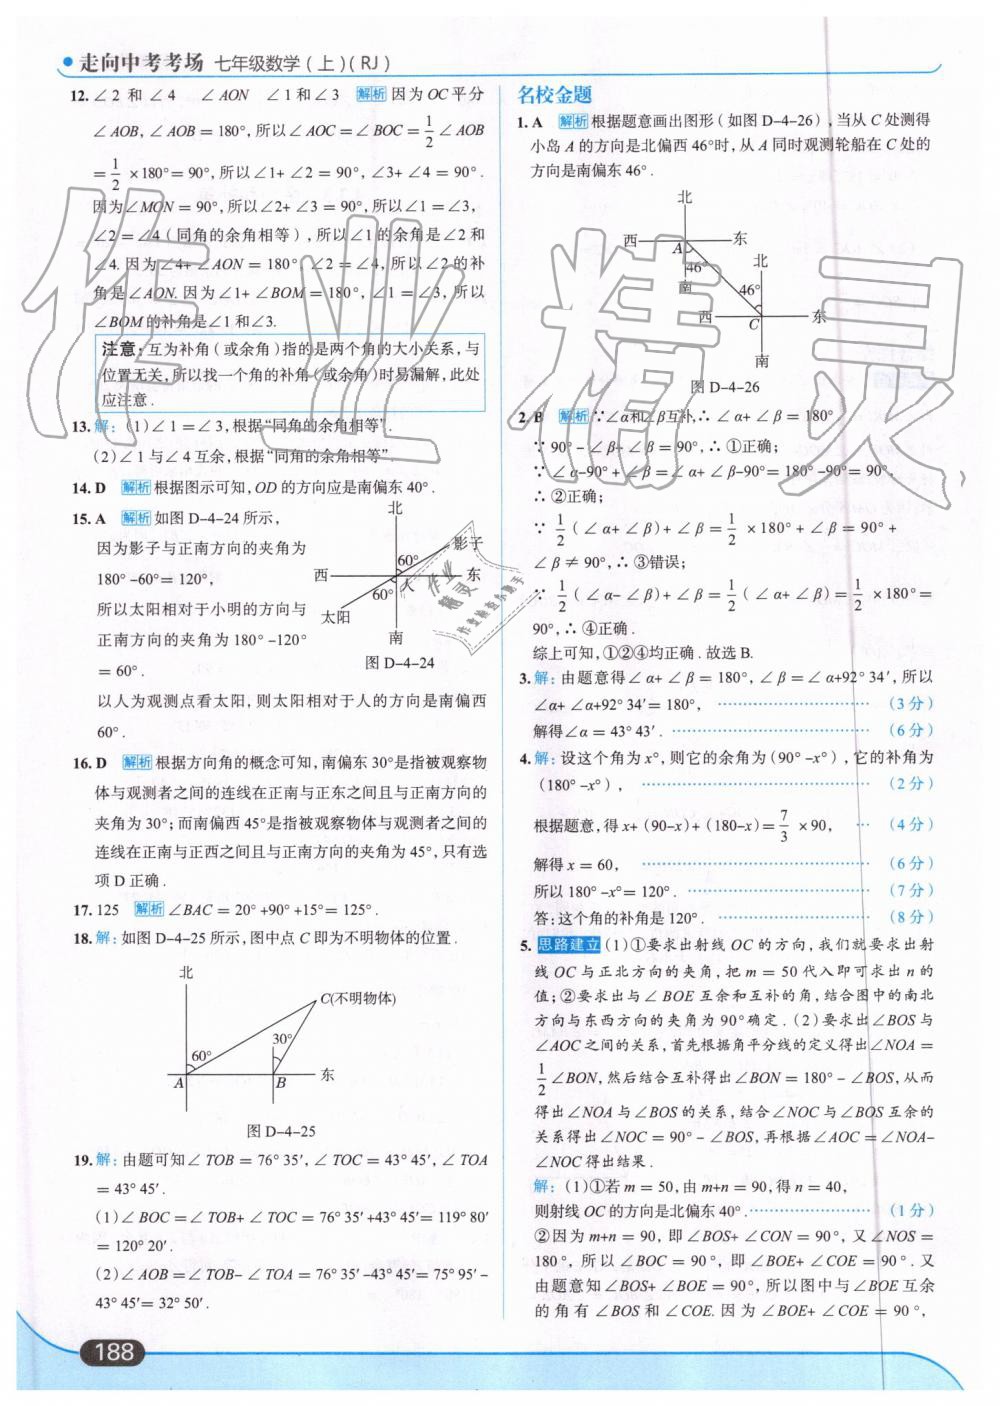 走向中考考场 七年级数学(上)(RJ)
12.∠2 和 ∠4　∠AON　∠1和∠3　解析 因为OC平分
∠AOB,∠AOB = 180°,所以∠AOC=∠BOC=1/2∠AOB
=1/2×180°=90°,所以∠1+∠2=90°,∠3+∠4=90°.
因为∠MON=90°,所以∠2+∠3=90°,所以∠1=∠3,
∠2=∠4(同角的余角相等),所以∠1的余角是∠2和
∠4.因为∠4+∠AON=180°,∠2=∠4,所以∠2的补
角是∠AON.因为∠1+∠BOM=180°,∠1=∠3,所以
∠BOM的补角是∠1和∠3.
注意:互为补角(或余角)指的是两个角的大小关系,与
位置无关,所以找一个角的补角(或余角)时易漏解,此处
应注意.
13.解:(1)∠1=∠3,根据“同角的余角相等”.
(2)∠1与∠4互余,根据“同角的余角相等”.
14.D　解析 根据图示可知,OD的方向应是南偏东40°.
15.A　解析 如图D-4-24所示,
因为影子与正南方向的夹角为
180°-60°=120°,
所以太阳相对于小明的方向与
正南方向的夹角为180°-120°
=60°.
北
影子
60°
西
东
人
60°
太阳
南
图 D-4-24
以人为观测点看太阳,则太阳相对于人的方向是南偏西
60°.
16.D　解析 根据方向角的概念可知,南偏东30°是指被观察物
体与观测者之间的连线在正南与正东之间且与正南方向的
夹角为30°;而南偏西45°是指被观察物体与观测者之间的
连线在正南与正西之间且与正南方向的夹角为45°,只有选
项D正确.
17.125　解析 ∠BAC=20°+90°+15°=125°.
18.解:如图D-4-25所示,图中点C即为不明物体的位置.
北
C(不明物体)
60°
30°
A
B
东
图 D-4-25
19.解:由题可知∠TOB=76°35′,∠TOC=43°45′,∠TOA
=43°45′.
(1)∠BOC=∠TOB+∠TOC=76°35′+43°45′=119°80′
=120°20′.
(2)∠AOB=∠TOB-∠TOA=76°35′-43°45′=75°95′-
43°45′=32°50′.
188
名校金题
1.A　解析 根据题意画出图形(如图D-4-26),当从C处测得
小岛A的方向是北偏西46°时,从A同时观测轮船在C处的
方向是南偏东46°.
北
西
A
东
46°
北
南
46°
西
C
东
南
图 D-4-26
2.B　解析 ∵∠α和∠β互补,∴∠α+∠β=180°.
∵90°-∠β+∠β=90°,∴①正确;
∵∠α-90°+∠β=∠α+∠β-90°=180°-90°=90°,
∴②正确;
∵1/2(∠α+∠β)+∠β=1/2×180°+∠β=90°+
∠β≠90°,∴③错误;
∵1/2(∠α-∠β)+∠β=1/2(∠α+∠β)=1/2×180°=
90°,∴④正确.
综上可知,①②④均正确.故选B.
3.解:由题意得∠α+∠β=180°,∠β=∠α+92°34′,所以
∠α+∠α+92°34′=180°, (3分)
解得∠α=43°43′. (6分)
4.解:设这个角为x°,则它的余角为(90°-x°),它的补角为
(180°-x°), (2分)
根据题意,得x+(90-x)+(180-x)=7/3×90, (4分)
解得x=60, (6分)
所以180°-x°=120°. (7分)
答:这个角的补角是120°. (8分)
5.思路建立 (1)①要求出射线OC的方向,我们就要求出射
线OC与正北方向的夹角,把m=50代入即可求出n的
值;②要求出与∠BOE互余和互补的角,结合图中的南北
方向与东西方向的夹角为90°确定.(2)要求出∠BOS与
∠AOC之间的关系,首先根据角平分线的定义得出∠NOA=
1/2∠BON,然后结合互补得出∠BON=180°-∠BOS,从而
得出∠NOA与∠BOS的关系,结合∠NOC与∠BOS互余的
关系得出∠NOC=90°-∠BOS,再根据∠AOC=∠NOA-
∠NOC得出结果.
解:(1)①若m=50,由m+n=90,得n=40,
则射线OC的方向是北偏东40°. (1分)
②因为m+n=90,即∠BOS+∠CON=90°,又∠NOS=
180°,所以∠BOC=90°,即∠BOE+∠COE=90°.又
由题意知∠BOS+∠BOE=90°,所以图中与∠BOE互余
的角有∠BOS和∠COE.因为∠BOE+∠COE=90°,
作业精灵
作业
精灵